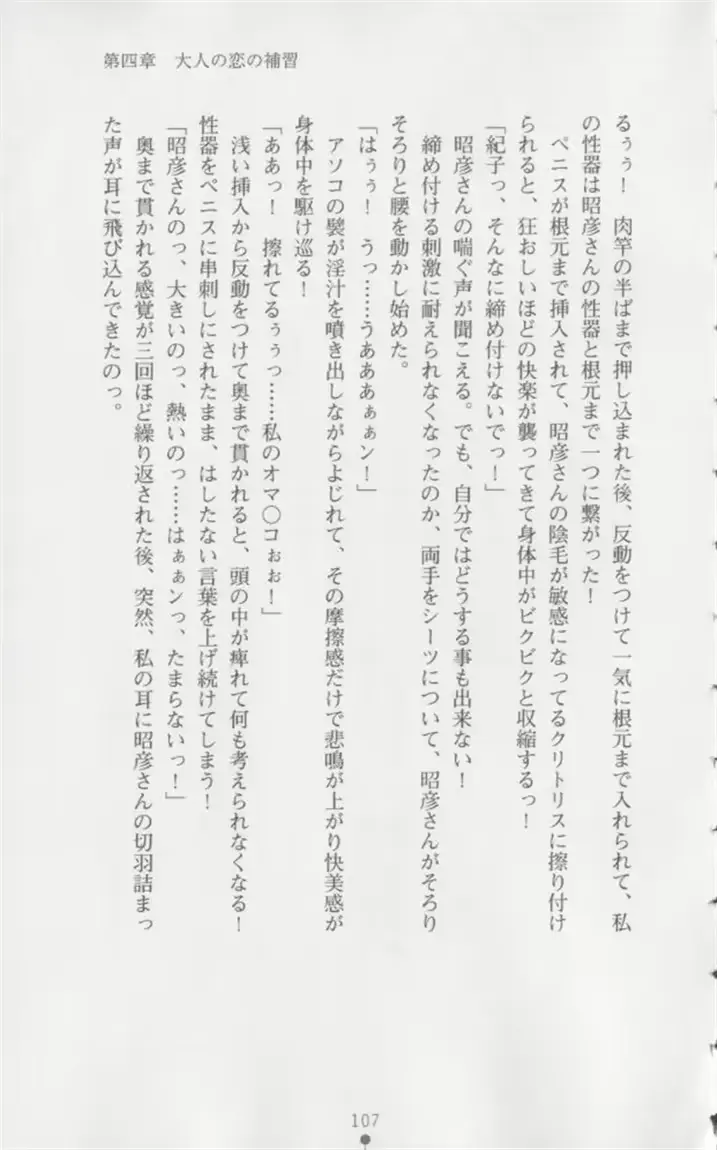 第四章　大人の恋の補習
るぅぅ！　肉竿の半ばまで押し込まれた後、反動をつけて一気に根元まで入れられて、私
の性器は昭彦さんの性器と根元まで一つに繋がった！
ペニスが根元まで挿入されて、昭彦さんの陰毛が敏感になってるクリトリスに擦り付け
られると、狂おしいほどの快楽が襲ってきて身体中がビクビクと収縮するっ！
「紀子っ、そんなに締め付けないでっ！」
昭彦さんの喘ぐ声が聞こえる。でも、自分ではどうする事も出来ない！
締め付ける刺激に耐えられなくなったのか、両手をシーツについて、昭彦さんがそろり
そろりと腰を動かし始めた。
「はぅぅ！　うっ……うあああぁぁン！」
アソコの襞が淫汁を噴き出しながらよじれて、その摩擦感だけで悲鳴が上がり快美感が
身体中を駆け巡る！
「ああっ！　擦れてるぅぅっ……私のオマ〇コぉぉ！」
浅い挿入から反動をつけて奥まで貫かれると、頭の中が痺れて何も考えられなくなる！
性器をペニスに串刺しにされたまま、はしたない言葉を上げ続けてしまう！
「昭彦さんのっ、大きいのっ、熱いのっ……はぁぁンっ、たまらないっ！」
奥まで貫かれる感覚が三回ほど繰り返された後、突然、私の耳に昭彦さんの切羽詰まっ
た声が耳に飛び込んできたのっ。
107